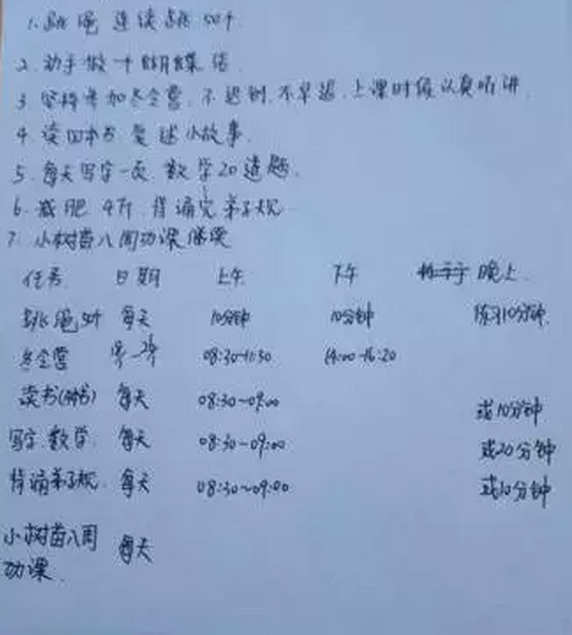 1. 跳绳 连续跳50个
2. 动手做个蝴蝶结
3. 坚持参加冬令营、不迟到、不早退、上课时候认真听讲.
4. 读四本书 复述小故事.
5. 每天写字一页 数学20道题.
6. 减肥 4斤. 背诵完弟子规
7. 小树苗八周功课
任务 日期 上午 下午 晚上.
跳绳50个 每天 10分钟 10分钟 练习10分钟.
冬令营 08:30-11:30 14:00-16:20
读书 每天 08:30-09:00 或10分钟
写字.数学. 每天 08:30-09:00 或20分钟
背诵弟子规. 每天 08:30-09:00 或10分钟
小树苗八周 每天
功课.